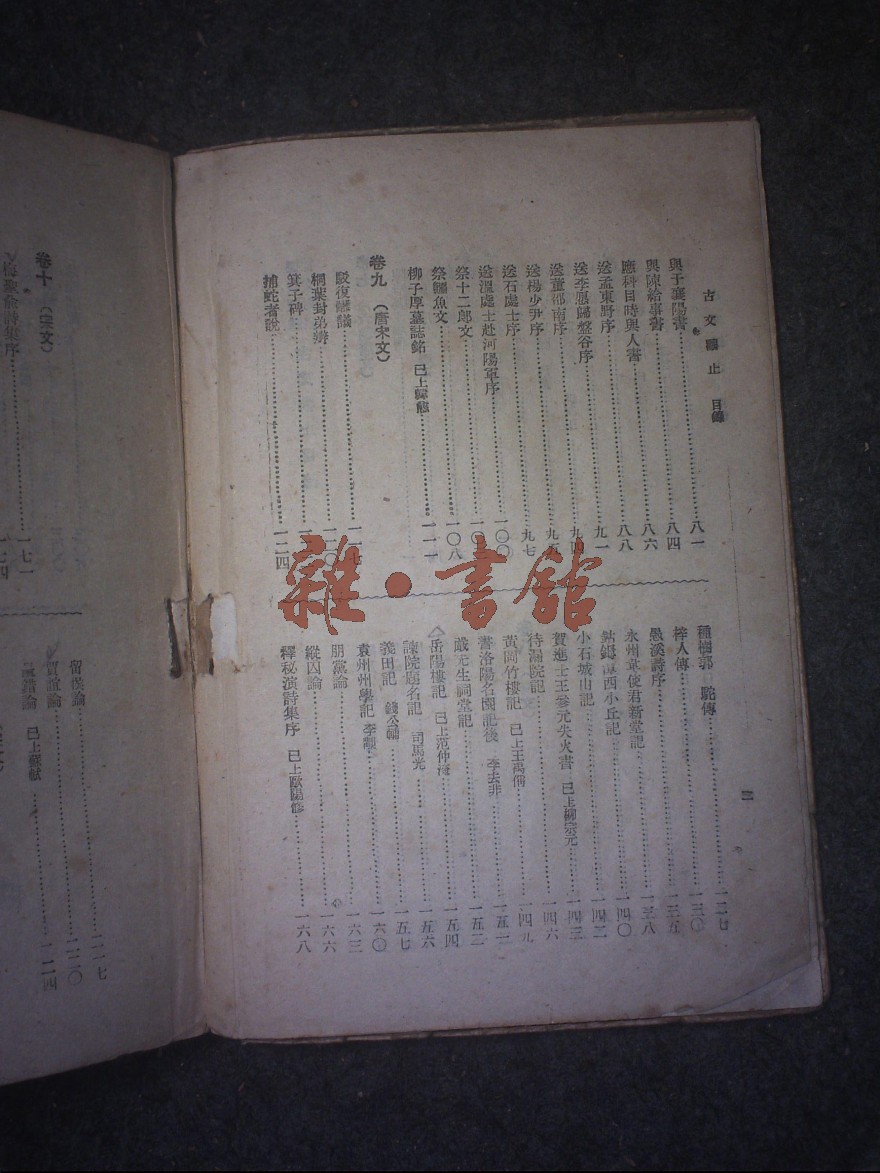 古文觀止 目錄
與于襄陽書 八一
與陳給事書 八四
應科目時與人書 八六
送孟東野序 八八
送李愿歸盤谷序 九一
送董邵南序 九四
送楊少尹序 九五
送石處士序 九七
送溫處士赴河陽軍序 一〇〇
祭十二郎文
祭鱷魚文 一〇八
柳子厚墓誌銘 已上韓愈 一一一
卷九 (唐宋文)
駁復讎議
桐葉封弟辨
箕子碑
捕蛇者說 一二四
種樹郭 駝傳 一二七
梓人傳 一三〇
愚溪詩序 一三五
永州韋使君新堂記 一三八
鈷鉧潭西小丘記 一四〇
小石城山記 一四二
賀進士王參元失火書 已上柳宗元 一四三
待漏院記 一四六
黃岡竹樓記 已上王禹偁 一四九
書洛陽名園記後 李去非 一五一
嚴先生祠堂記 一五二
岳陽樓記 已上范仲淹 一五四
諫院題名記 司馬光 一五六
義田記 錢公輔 一五七
袁州州學記 李覯 一六〇
朋黨論 一六三
縱囚論 一六六
釋秘演詩集序 已上歐陽修 一六八
三
卷十 (宋文)
梅聖俞詩集序 一七一
七四
留侯論 二一七
賈誼論 二二〇
鼂錯論 已上蘇軾 二二四
雜·書館